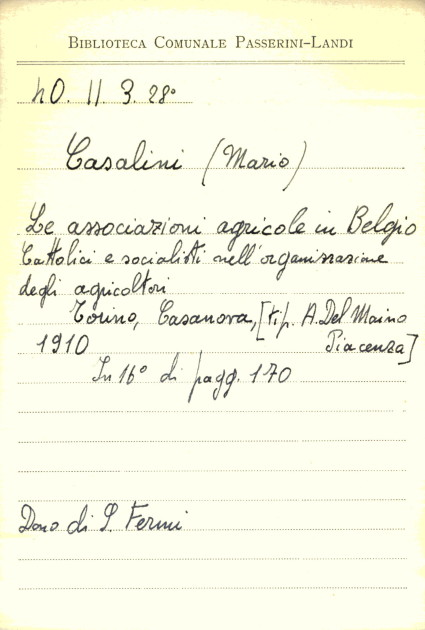 BIBLIOTECA COMUNALE PASSERINI-LANDI
40. II. 3. 28°
Casalini (Mario)
Le associazioni agricole in Belgio
Cattolici e socialisti nell'organizzazione
degli agricoltori
Torino, Casanova, [tip. A. Del Maino
1910 Piacenza]
In 16° di pagg. 170
Dono di S. Fermi